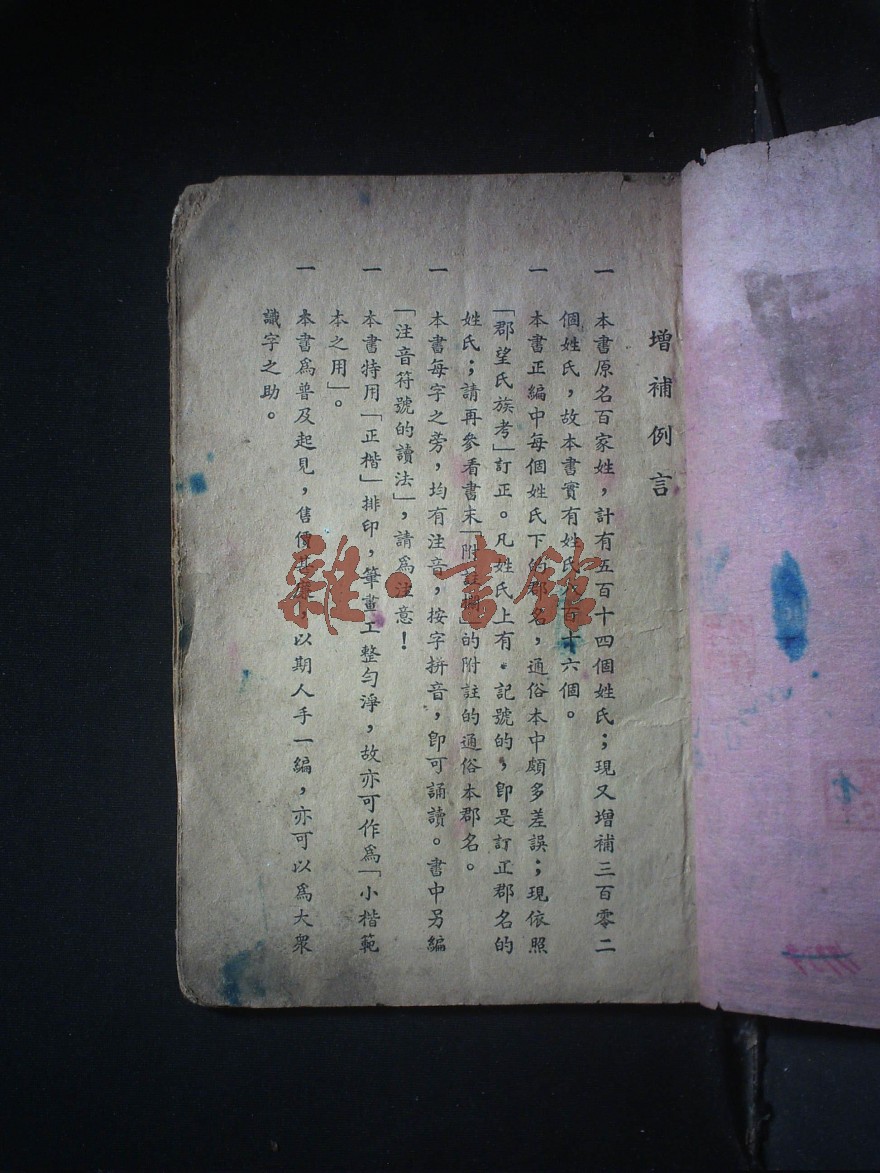 增補例言
一 本書原名百家姓，計有五百十四個姓氏；現又增補三百零二
個姓氏，故本書實有姓氏八百十六個。
一 本書正編中每個姓氏下的郡名，通俗本中頗多差誤；現依照
「郡望氏族考」訂正。凡姓氏上有•記號的，即是訂正郡名的
姓氏；請再參看書末「附註欄」的附註的通俗本郡名。
一 本書每字之旁，均有注音，按字拼音，即可誦讀。書中另編
「注音符號的讀法」，請為注意！
一 本書特用「正楷」排印，筆畫工整勻淨，故亦可作為「小楷範
本之用」。
一 本書為普及起見，售價甚廉，以期人手一編，亦可以為大眾
識字之助。
雜·書館